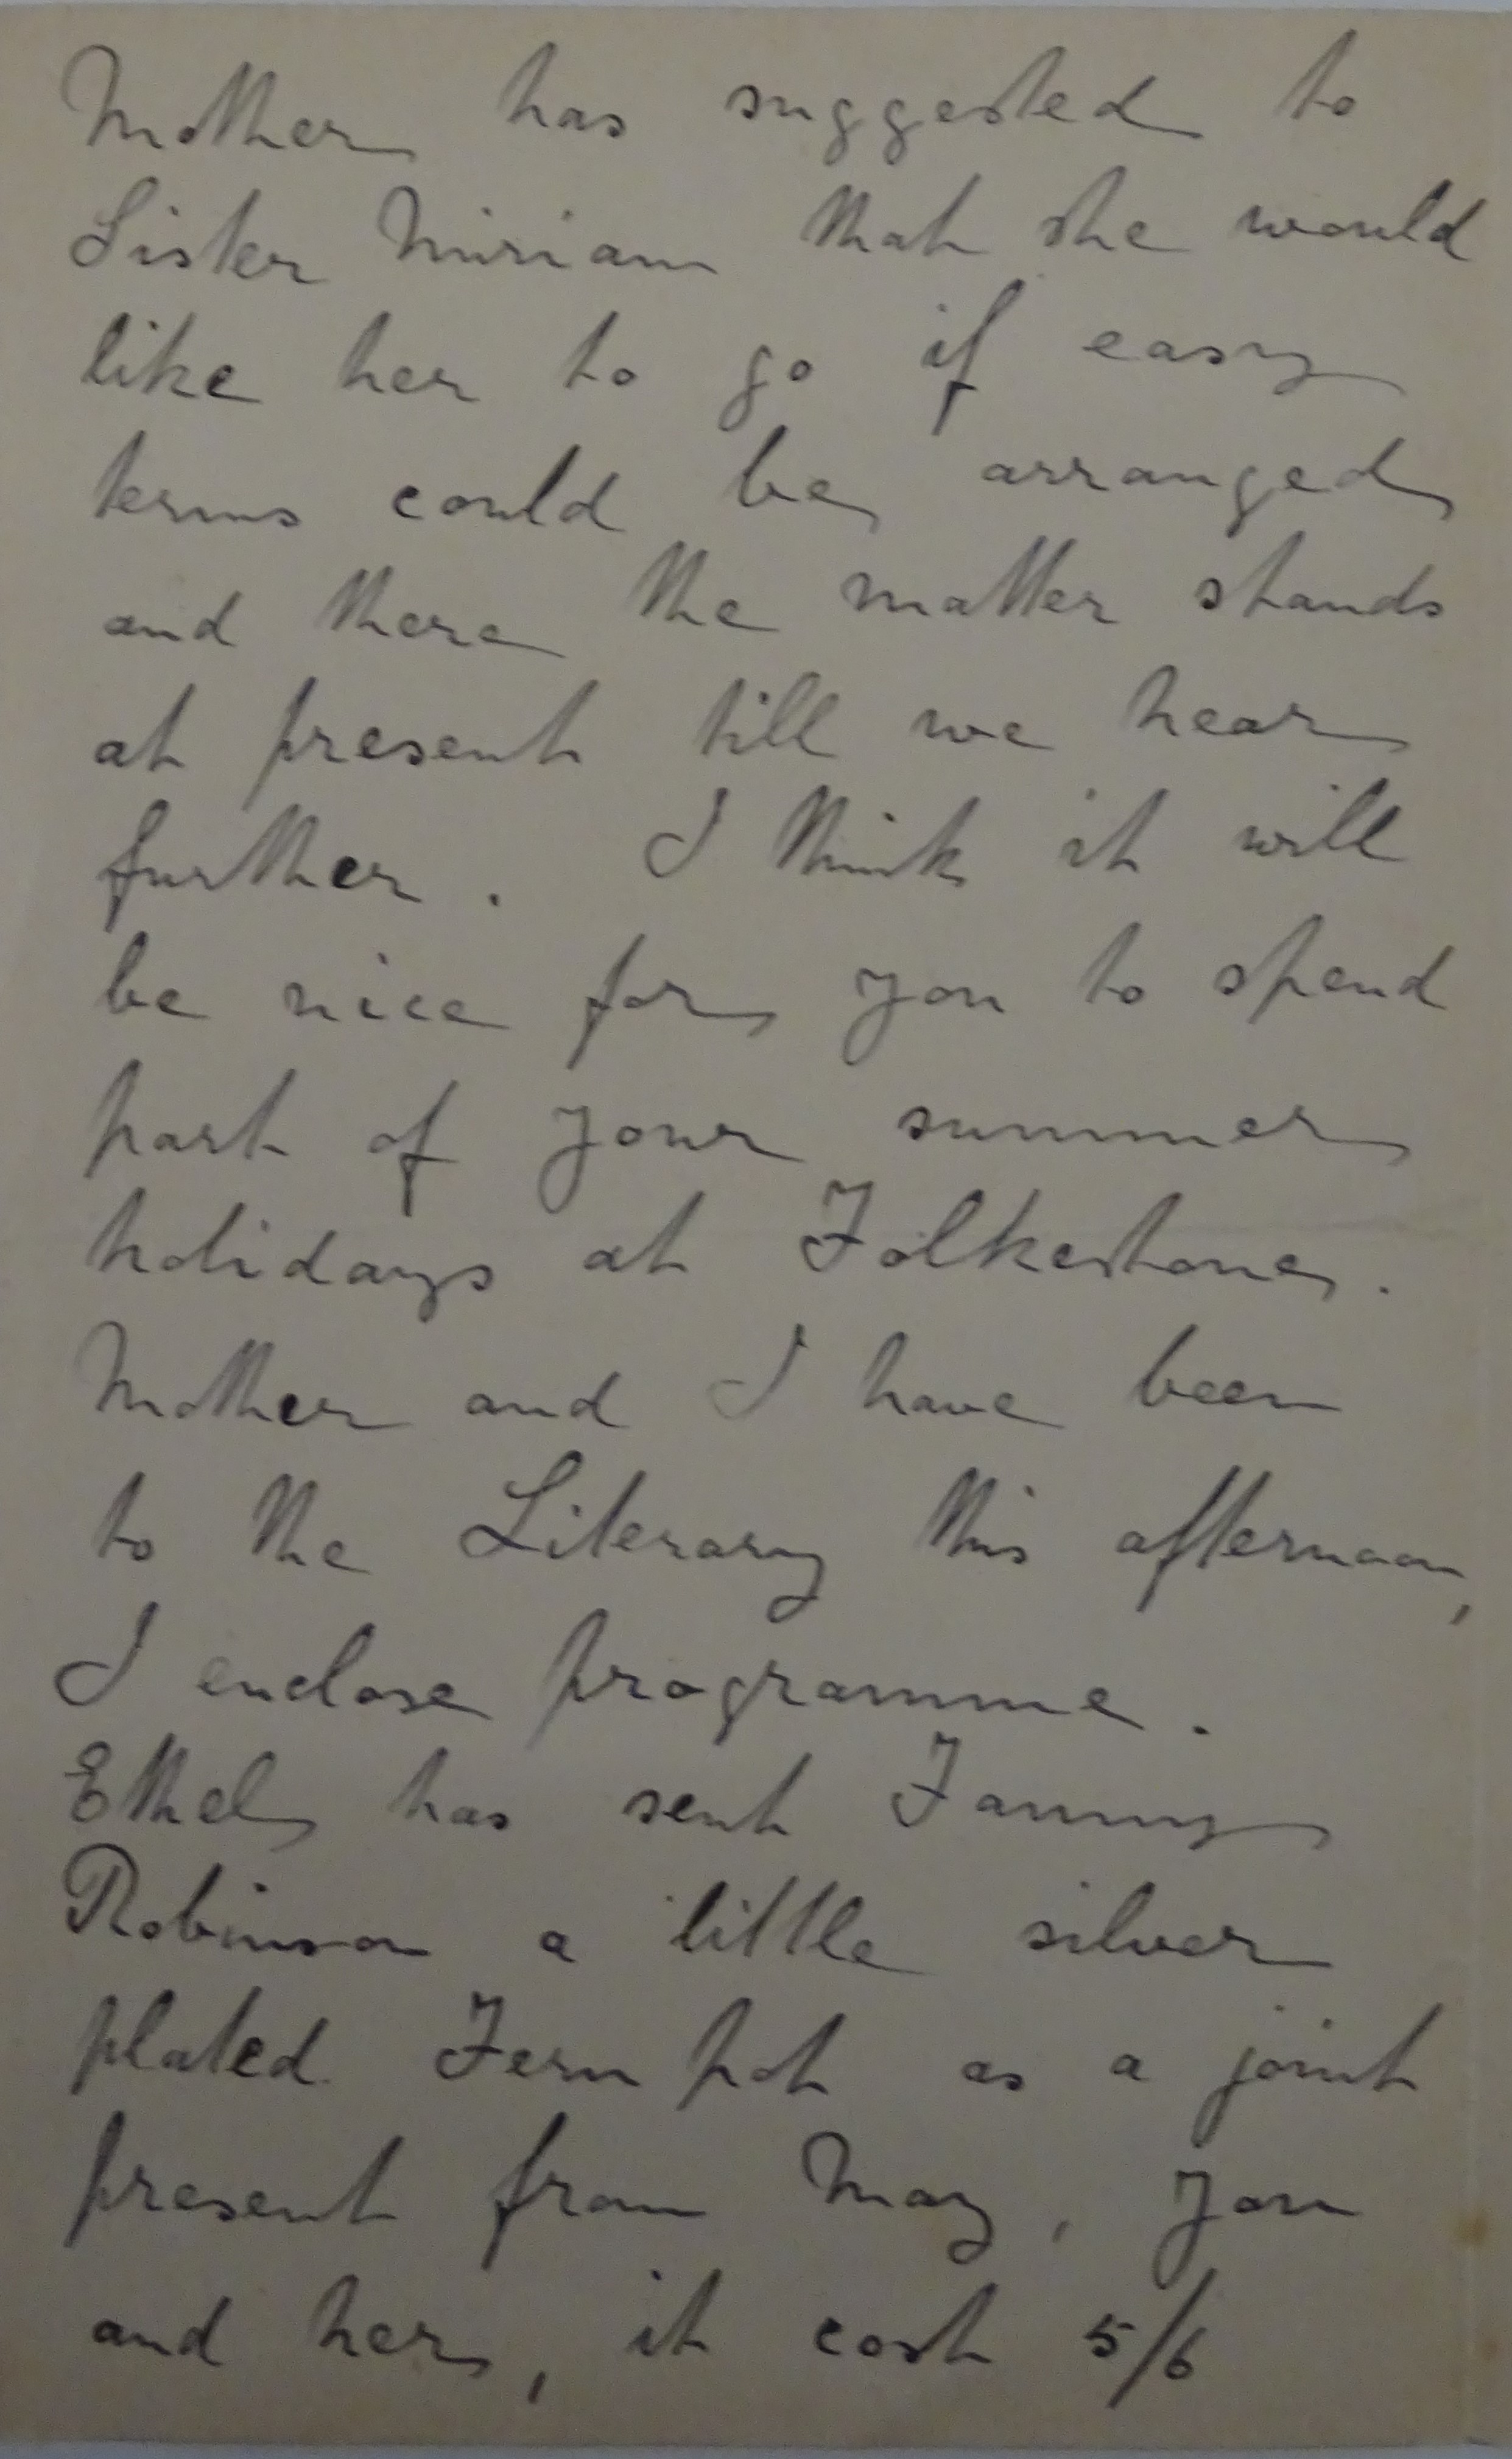 Mother has suggested to
Sister Miriam that she would
like her to go if easy
terms could be arranged
and there the matter stands
at present till we hear
further. I think it will
be nice for you to spend
part of your summer
holidays at Folkestone.
Mother and I have been
to the Literary this afternoon,
I enclose programme.
Ethel has sent Fanny
Robinson a little silver
plated Fern pot as a joint
present from May, you
and her, it cost 5/6